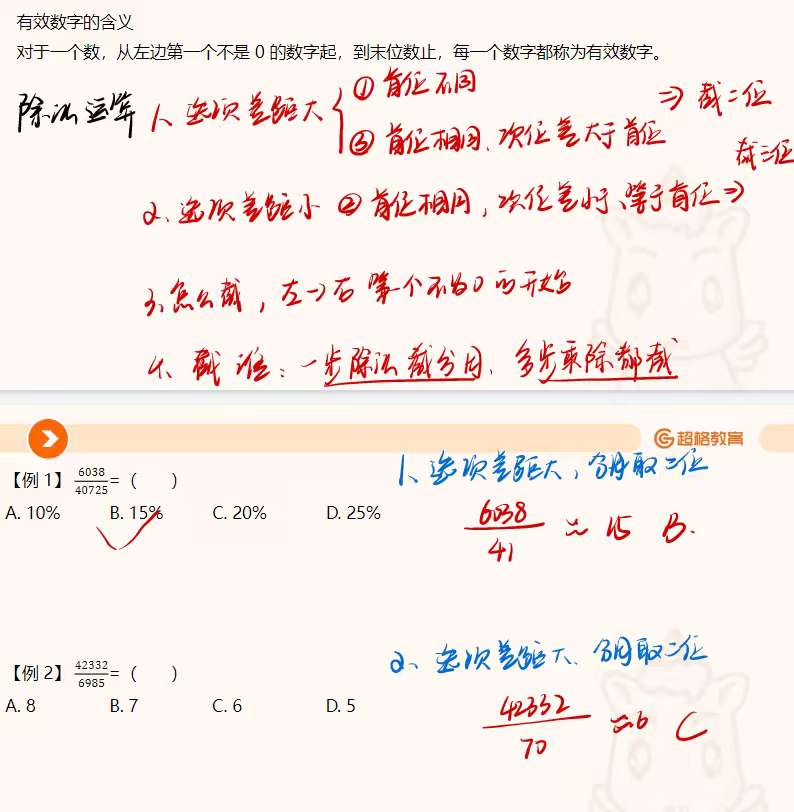 有效数字的含义
对于一个数，从左边第一个不是 0 的数字起，到末位数止，每一个数字都称为有效数字。
除法运算 1、选项差距大 ① 首位不同 ⇒ 截二位
② 首位相同、次位差大于首位
截三位
2、选项差距小 ② 首位相同，次位差小于、等于首位⇒
3、怎么截，左→右 第一个不为0的开始
4、截谁：一步除法截分母、多步乘除都截
超格教育
1、选项差距大，分母取二位
【例 1】6038/40725=（ ）
A. 10% B. 15% C. 20% D. 25%
6038/41 ≈ 15 B.
2、选项差距大、分母取二位
【例 2】42332/6985=（ ）
A. 8 B. 7 C. 6 D. 5
42332/70 ≈6 C